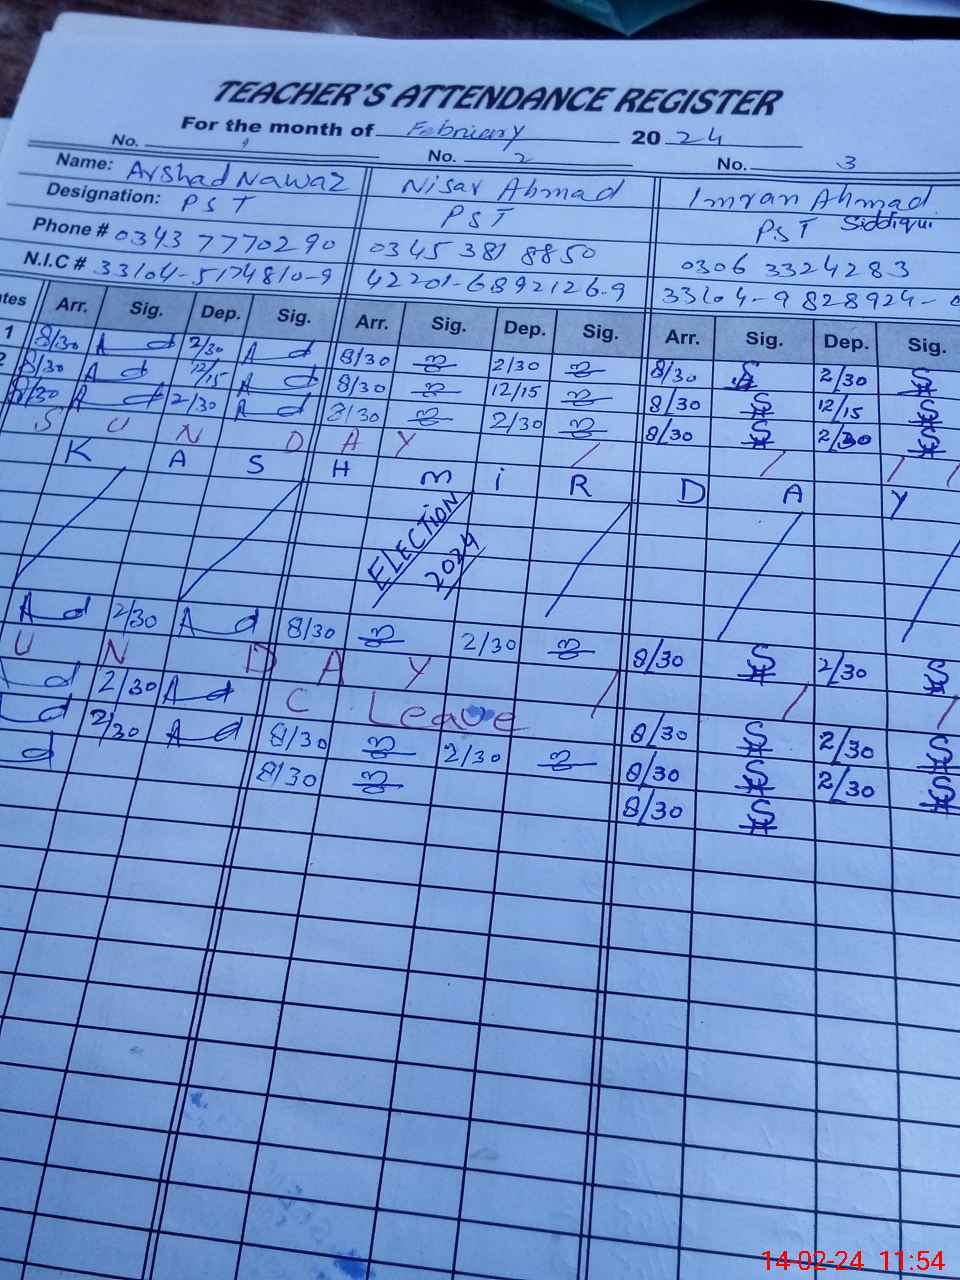 TEACHER'S ATTENDANCE REGISTER
For the month of February 2024
No. 1 No. 2 No. 3
Name: Arshad Nawaz Nisar Ahmad Imran Ahmad Siddiqui
Designation: PST PST PST
Phone # 0343 7770290 0345 381 8850 0306 3324283
N.I.C # 33104-5174810-9 42201-6892126-9 33104-9828924-
tes Arr. Sig. Dep. Sig. Arr. Sig. Dep. Sig. Arr. Sig. Dep. Sig.
1 8/30 2/30 8/30 2/30 8/30 2/30
2 8/30 12/15 8/30 12/15 8/30 12/15
8/30 2/30 8/30 2/30 8/30 2/30
SUNDAY
KASHMiR DAY
ELECTION
2024
2/30 8/30 2/30 8/30 2/30
UNDAY
2/30 C Leave 8/30 2/30
2/30 8/30 2/30 8/30 2/30
8/30 8/30
14-02-24 11:54